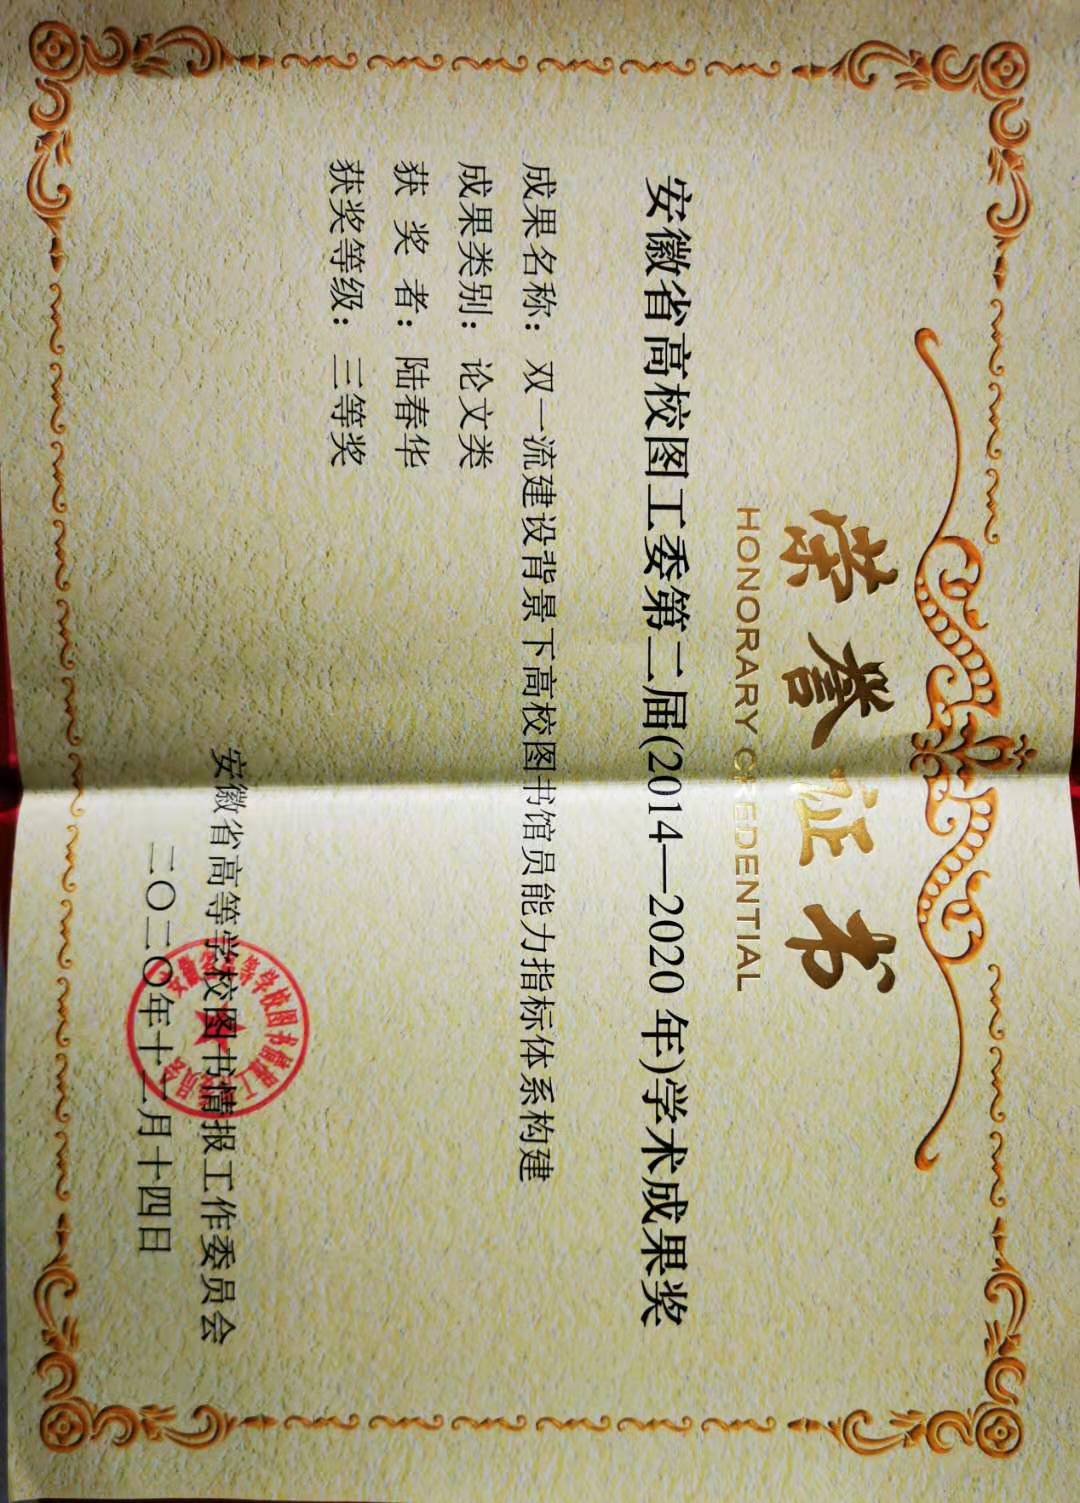 荣誉证书
HONORARY CREDENTIAL
安徽省高校图工委第二届(2014—2020 年)学术成果奖
成果名称：双一流建设背景下高校图书馆员能力指标体系构建
成果类别：论文类
获 奖 者：陆春华
获奖等级：三等奖
安徽省高等学校图书情报工作委员会
二〇二〇年十二月十四日